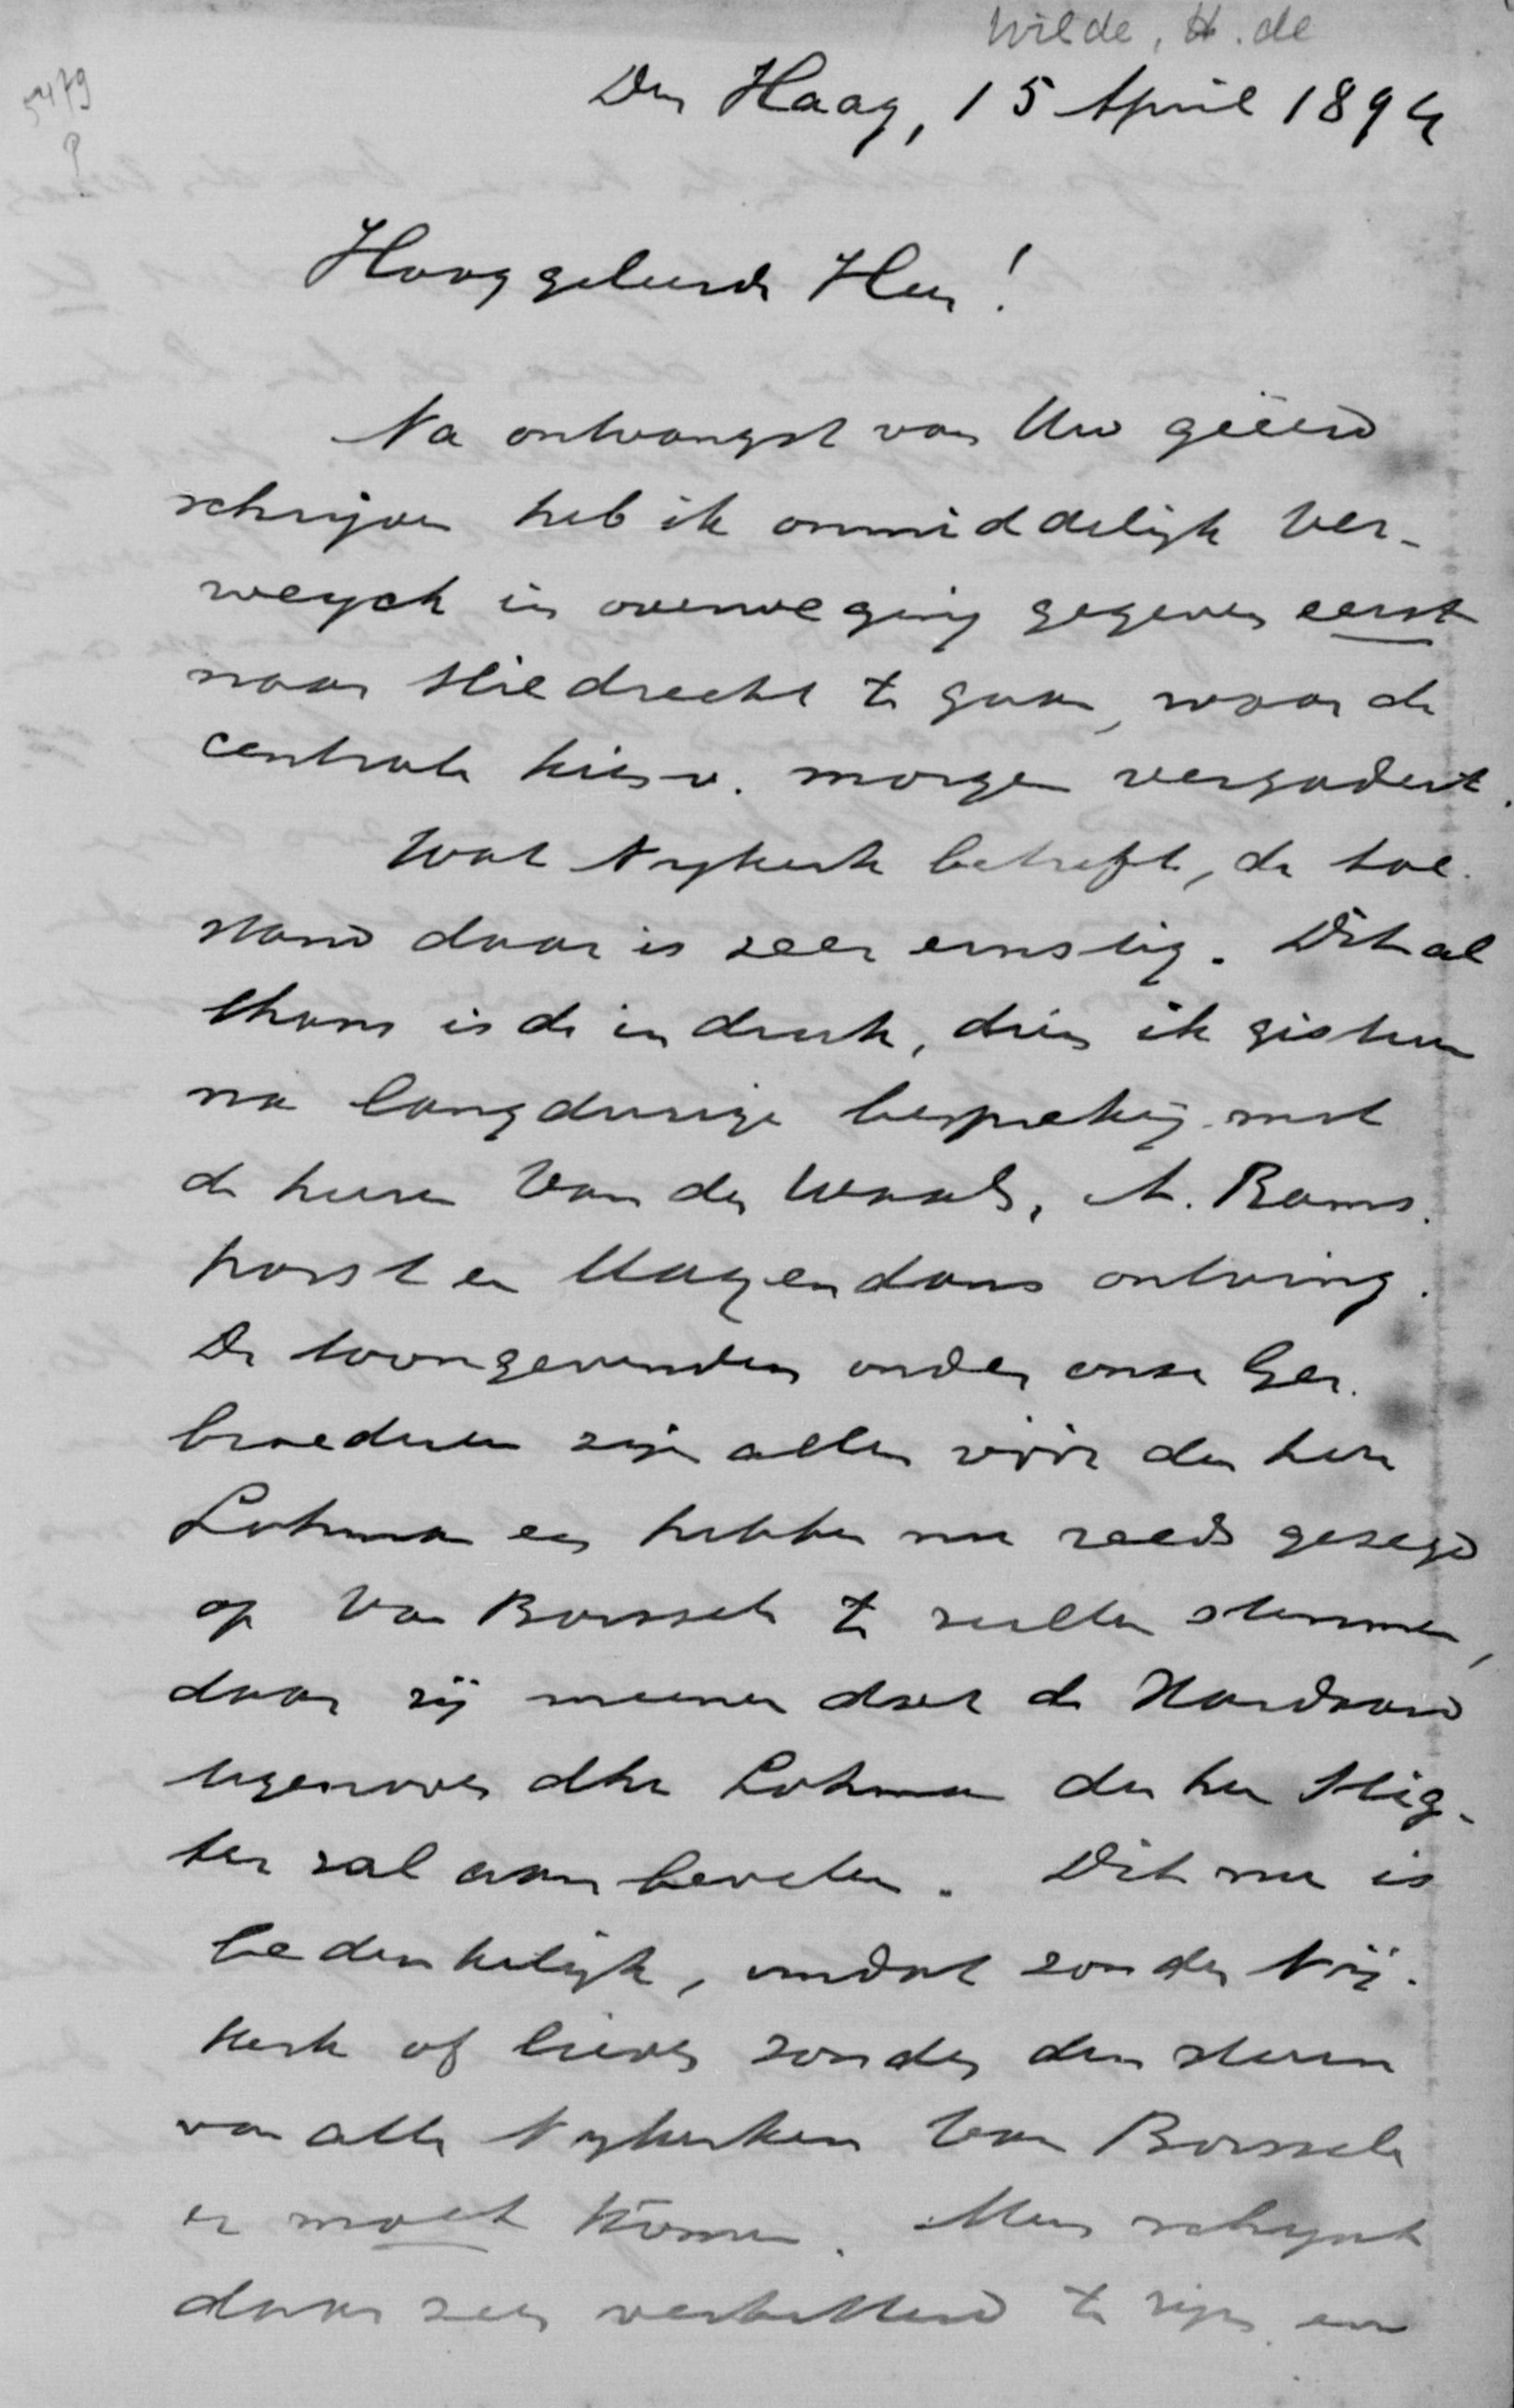 Wilde, H. de
5479
?
Den Haag, 15 April 1894
Hooggeleerde Heer!
Na ontvangst van Uw geëerd
schrijven heb ik onmiddelijk Ver-
weyck in overweging gegeven eerst
naar Sliedrecht te gaan, waar de
centrale kiesv. morgen vergadert.
Wat Nykerk betreft, de toe-
stand daar is zeer ernstig. Dit al
thans is de indruk, dien ik gisteren
na langdurige bespreking met
de heeren Van der Waals, A. Rams-
horst en Hagendans ontving.
De toongevenden onder onze Ger.
broederen zijn allen vóór den heer
Lohman en hebben nu reeds gezegd
op Van Borssele te zullen stemmen,
daar zij meenen dat de Standaard
tegenover dhr Lohman den heer Slig-
ter zal aanbevelen. Dit nu is
bedenkelijk, omdat zonder Nij-
kerk of liever zonder den steun
van alle Nykerkers Van Borssele
er moet komen. Men schynt
daar zeer verbitterd te zijn en